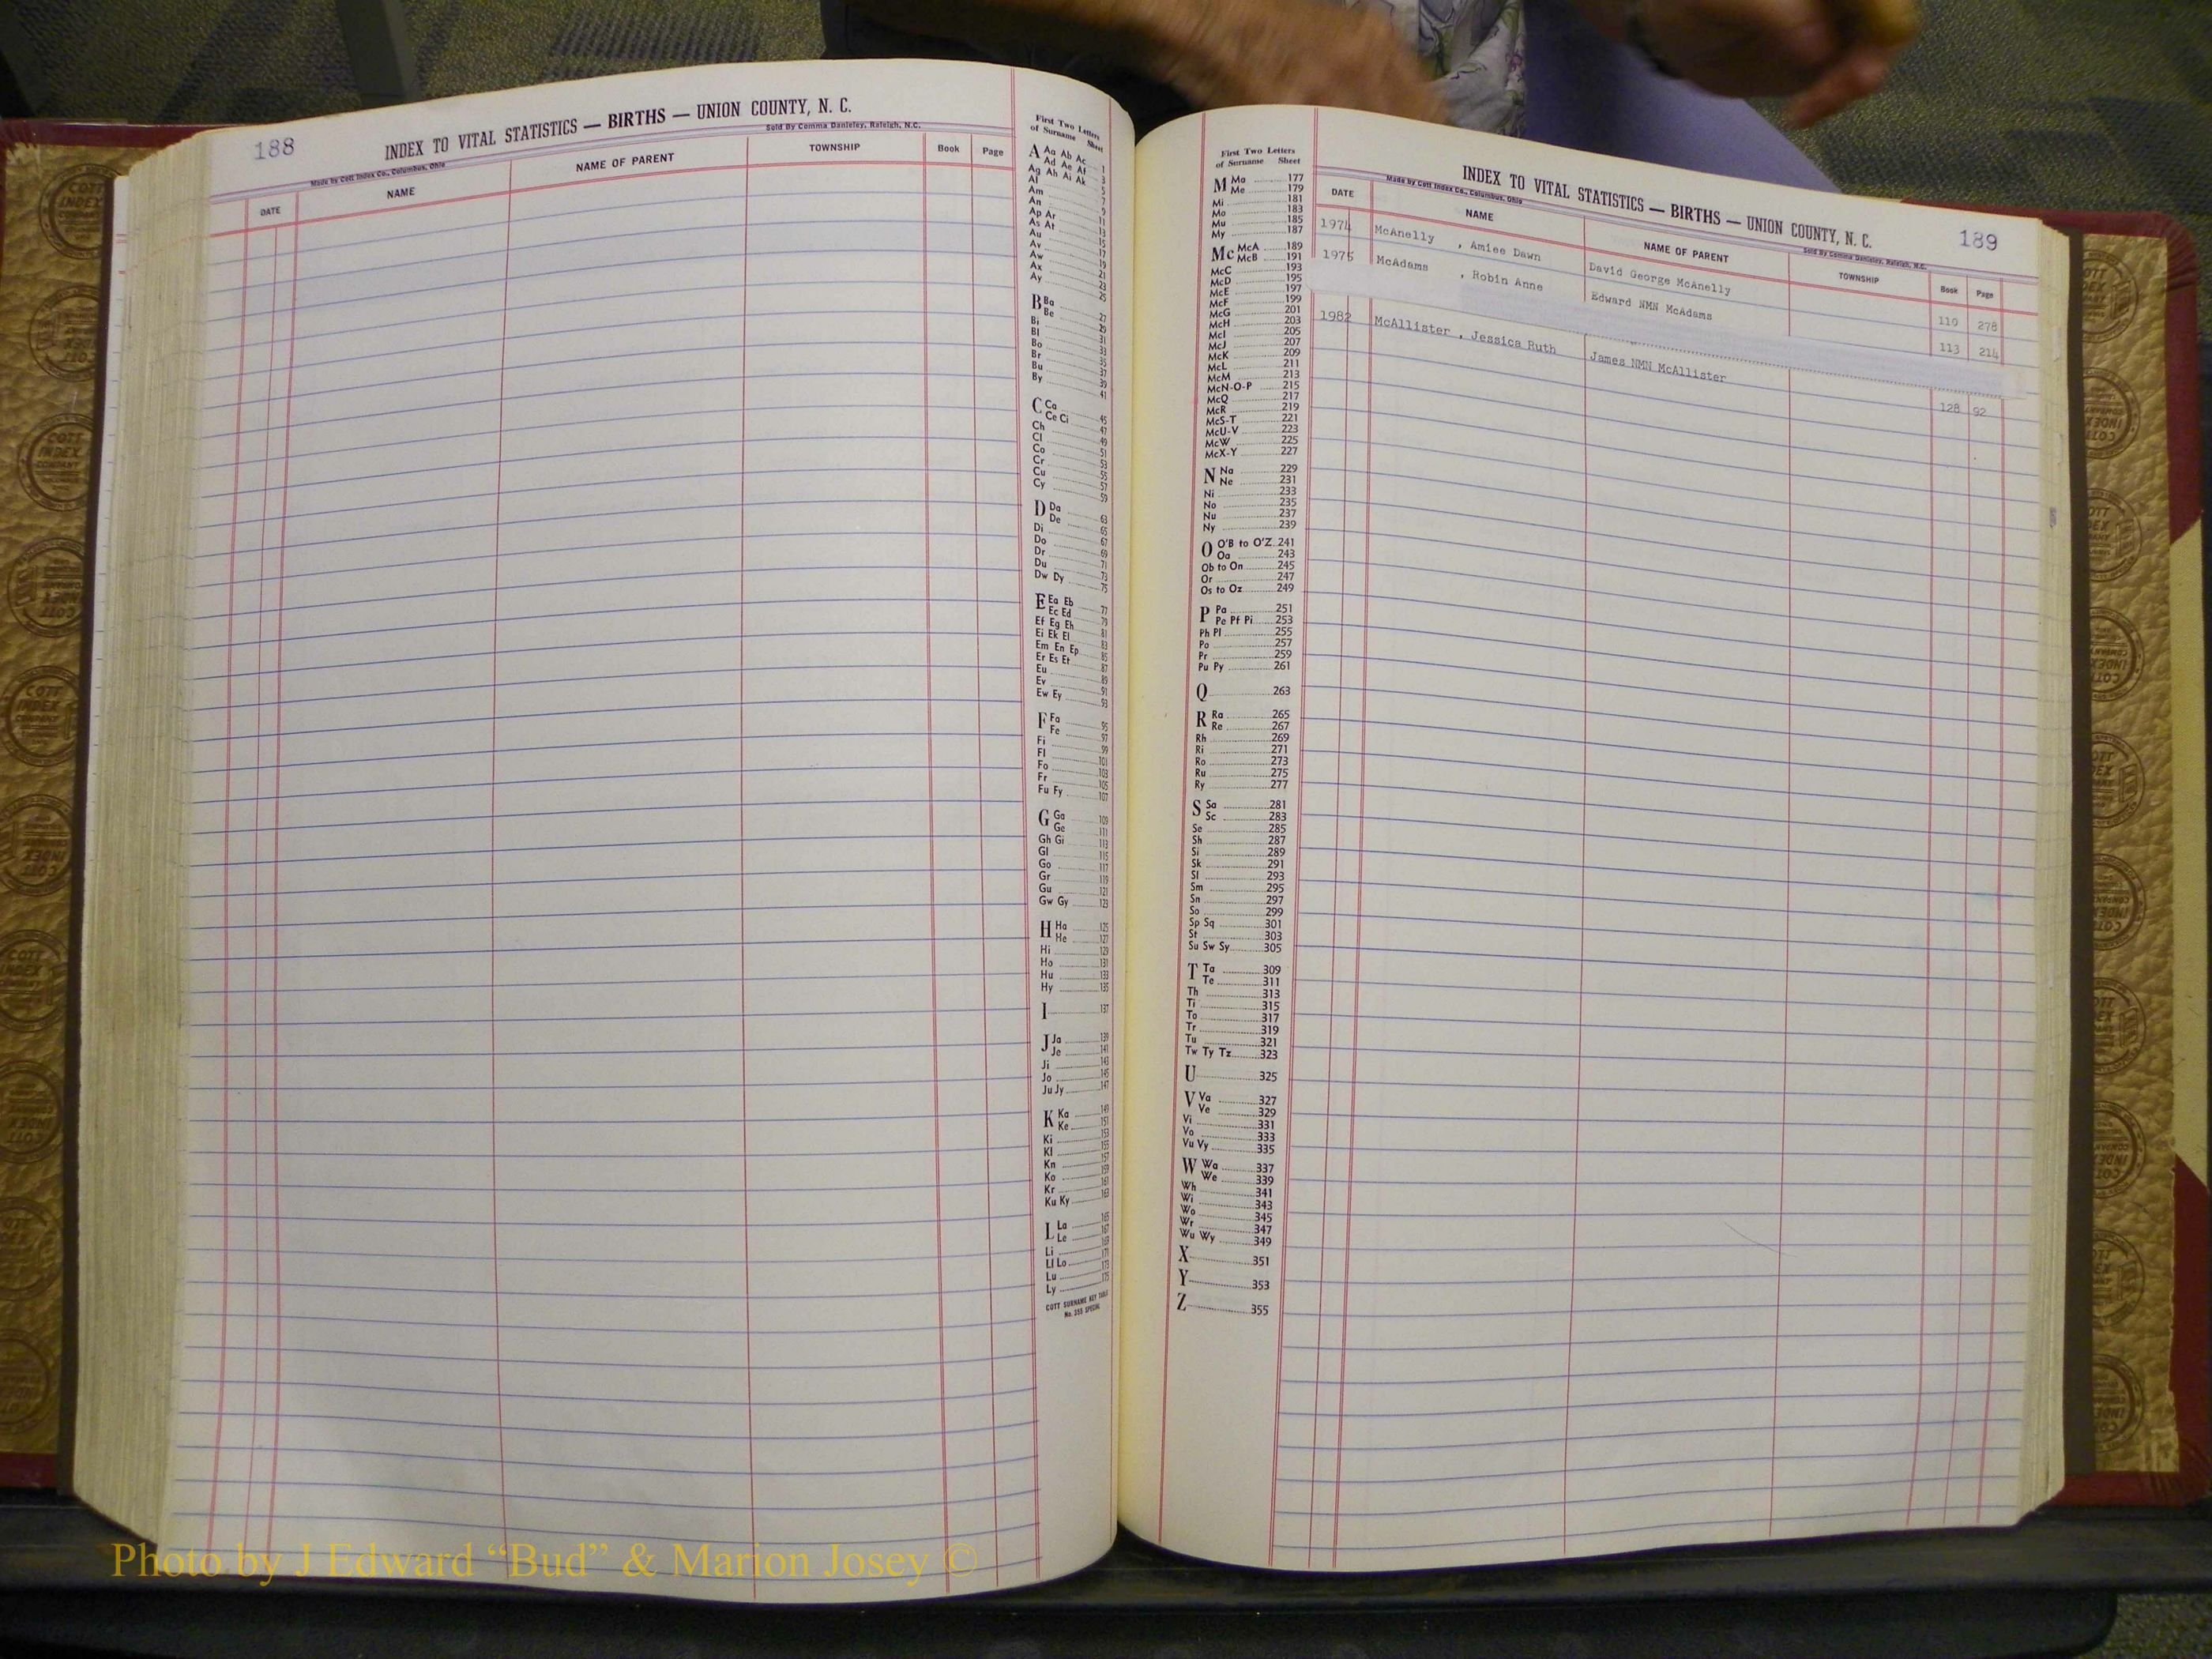 188
INDEX TO VITAL STATISTICS — BIRTHS — UNION COUNTY, N. C.
Made by Cott Index Co., Columbus, Ohio
Sold By Comma Danieley, Raleigh, N.C.
DATE NAME NAME OF PARENT TOWNSHIP Book Page
First Two Letters
of Surname Sheet
A Aa Ab Ac 1
Ad Ae Af 3
Ag Ah Ai Ak 5
Al 7
Am 9
An 11
Ap Ar 13
As At 15
Au 17
Av 19
Aw 21
Ax 23
Ay 25
B Ba 27
Be 29
Bi 31
Bl 33
Bo 35
Br 37
Bu 39
By 41
C Ca 45
Ce Ci 47
Ch 49
Cl 51
Co 53
Cr 55
Cu 57
Cy 59
D Da 63
De 65
Di 67
Do 69
Dr 71
Du 73
Dw Dy 75
E Ea Eb 77
Ec Ed 79
Ef Eg Eh 81
Ei Ek El 83
Em En Ep 85
Er Es Et 87
Eu 89
Ev 91
Ew Ey 93
F Fa 95
Fe 97
Fi 99
Fl 101
Fo 103
Fr 105
Fu Fy 107
G Ga 109
Ge 111
Gh Gi 113
Gl 115
Go 117
Gr 119
Gu 121
Gw Gy 123
H Ha 125
He 127
Hi 129
Ho 131
Hu 133
Hy 135
I 137
J Ja 139
Je 141
Ji 143
Jo 145
Ju Jy 147
K Ka 149
Ke 151
Ki 153
Kl 155
Kn 157
Ko 159
Kr 161
Ku Ky 163
L La 165
Le 167
Li 169
Ll Lo 171
Lu 173
Ly 175
COTT SURNAME KEY TABLE
No. 355 SPECIAL
First Two Letters
of Surname Sheet
M Ma 177
Me 179
Mi 181
Mo 183
Mu 185
My 187
Mc McA 189
McB 191
McC 193
McD 195
McE 197
McF 199
McG 201
McH 203
McI 205
McJ 207
McK 209
McL 211
McM 213
McN-O-P 215
McQ 217
McR 219
McS-T 221
McU-V 223
McW 225
McX-Y 227
N Na 229
Ne 231
Ni 233
No 235
Nu 237
Ny 239
O O'B to O'Z 241
Oa 243
Ob to On 245
Or 247
Os to Oz 249
P Pa 251
Pe Pf Pi 253
Ph Pl 255
Po 257
Pr 259
Pu Py 261
Q 263
R Ra 265
Re 267
Rh 269
Ri 271
Ro 273
Ru 275
Ry 277
S Sa 281
Sc 283
Se 285
Sh 287
Si 289
Sk 291
Sl 293
Sm 295
Sn 297
So 299
Sp Sq 301
St 303
Su Sw Sy 305
T Ta 309
Te 311
Th 313
Ti 315
To 317
Tr 319
Tu 321
Tw Ty Tz 323
U 325
V Va 327
Ve 329
Vi 331
Vo 333
Vu Vy 335
W Wa 337
We 339
Wh 341
Wi 343
Wo 345
Wr 347
Wu Wy 349
X 351
Y 353
Z 355
INDEX TO VITAL STATISTICS — BIRTHS — UNION COUNTY, N. C.
189
Made by Cott Index Co., Columbus, Ohio
Sold By Comma Danieley, Raleigh, N.C.
DATE NAME NAME OF PARENT TOWNSHIP Book Page
1974 McAnelly , Amiee Dawn David George McAnelly 110 278
1975 McAdams , Robin Anne Edward NMN McAdams 113 214
1982 McAllister , Jessica Ruth James NMN McAllister 128 92
Photo by J Edward “Bud” & Marion Josey ©